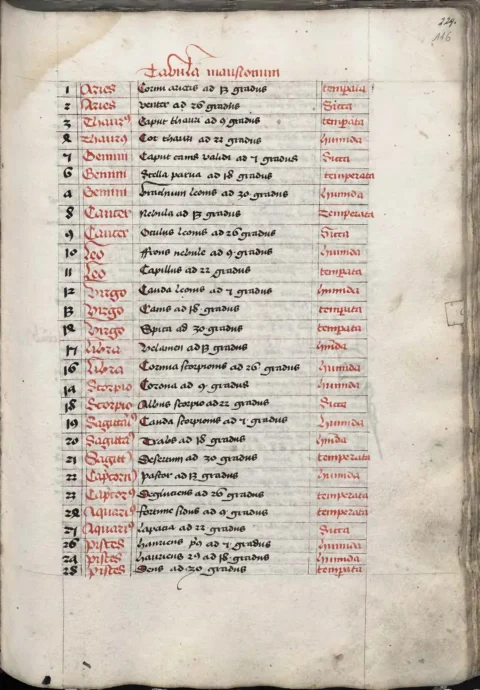 229.
116
Tabula mansionum
1 Aries Cornu arietis ad 13 gradus tempata
2 Aries venter ad 26 gradus Sicca
3 Thaur9 Caput thauri ad 9 gradus tempata
4 Thaur9 Cor thauri ad 22 gradus humida
5 Gemini Caput canis validi ad 5 gradus Sicca
6 Gemini Stella parua ad 18 gradus temperata
7 Gemini brachium leonis ad 30 gradus humida
8 Cancer Nebula ad 13 gradus Temperata
9 Cancer Oculus leonis ad 26 gradus Sicca
10 Leo ffrons nebule ad 9 gradus humida
11 Leo Capillus ad 22 gradus tempata
12 Virgo Cauda leonis ad 5 gradus humida
13 Virgo Canis ad 18 gradus tempata
14 Virgo Spica ad 30 gradus tempata
15 Libra Velamen ad 13 gradus huida
16 Libra Cornua scorpionis ad 26 gradus humida
17 Scorpio Corona ad 9 gradus humida
18 Scorpio ad 22 gradus Sicca
19 Sagittari9 Cauda scorpionis ad 5 gradus humida
20 Sagitta9 Trabs ad 18 gradus huida
21 Sagitt9 Desertum ad 30 gradus tempata
22 Capcorn9 pastor ad 13 gradus humida
23 Capcor9 Degluciens ad 26 gradus temperata
24 Aquari9 fortune sidus ad 9 gradus temperata
25 Aquari9 ad 22 gradus Sicca
26 pisces hauriens ad 5 gradus humida
27 pisces hauriens ad 18 gradus humida
28 pisces ad 30 gradus tempata